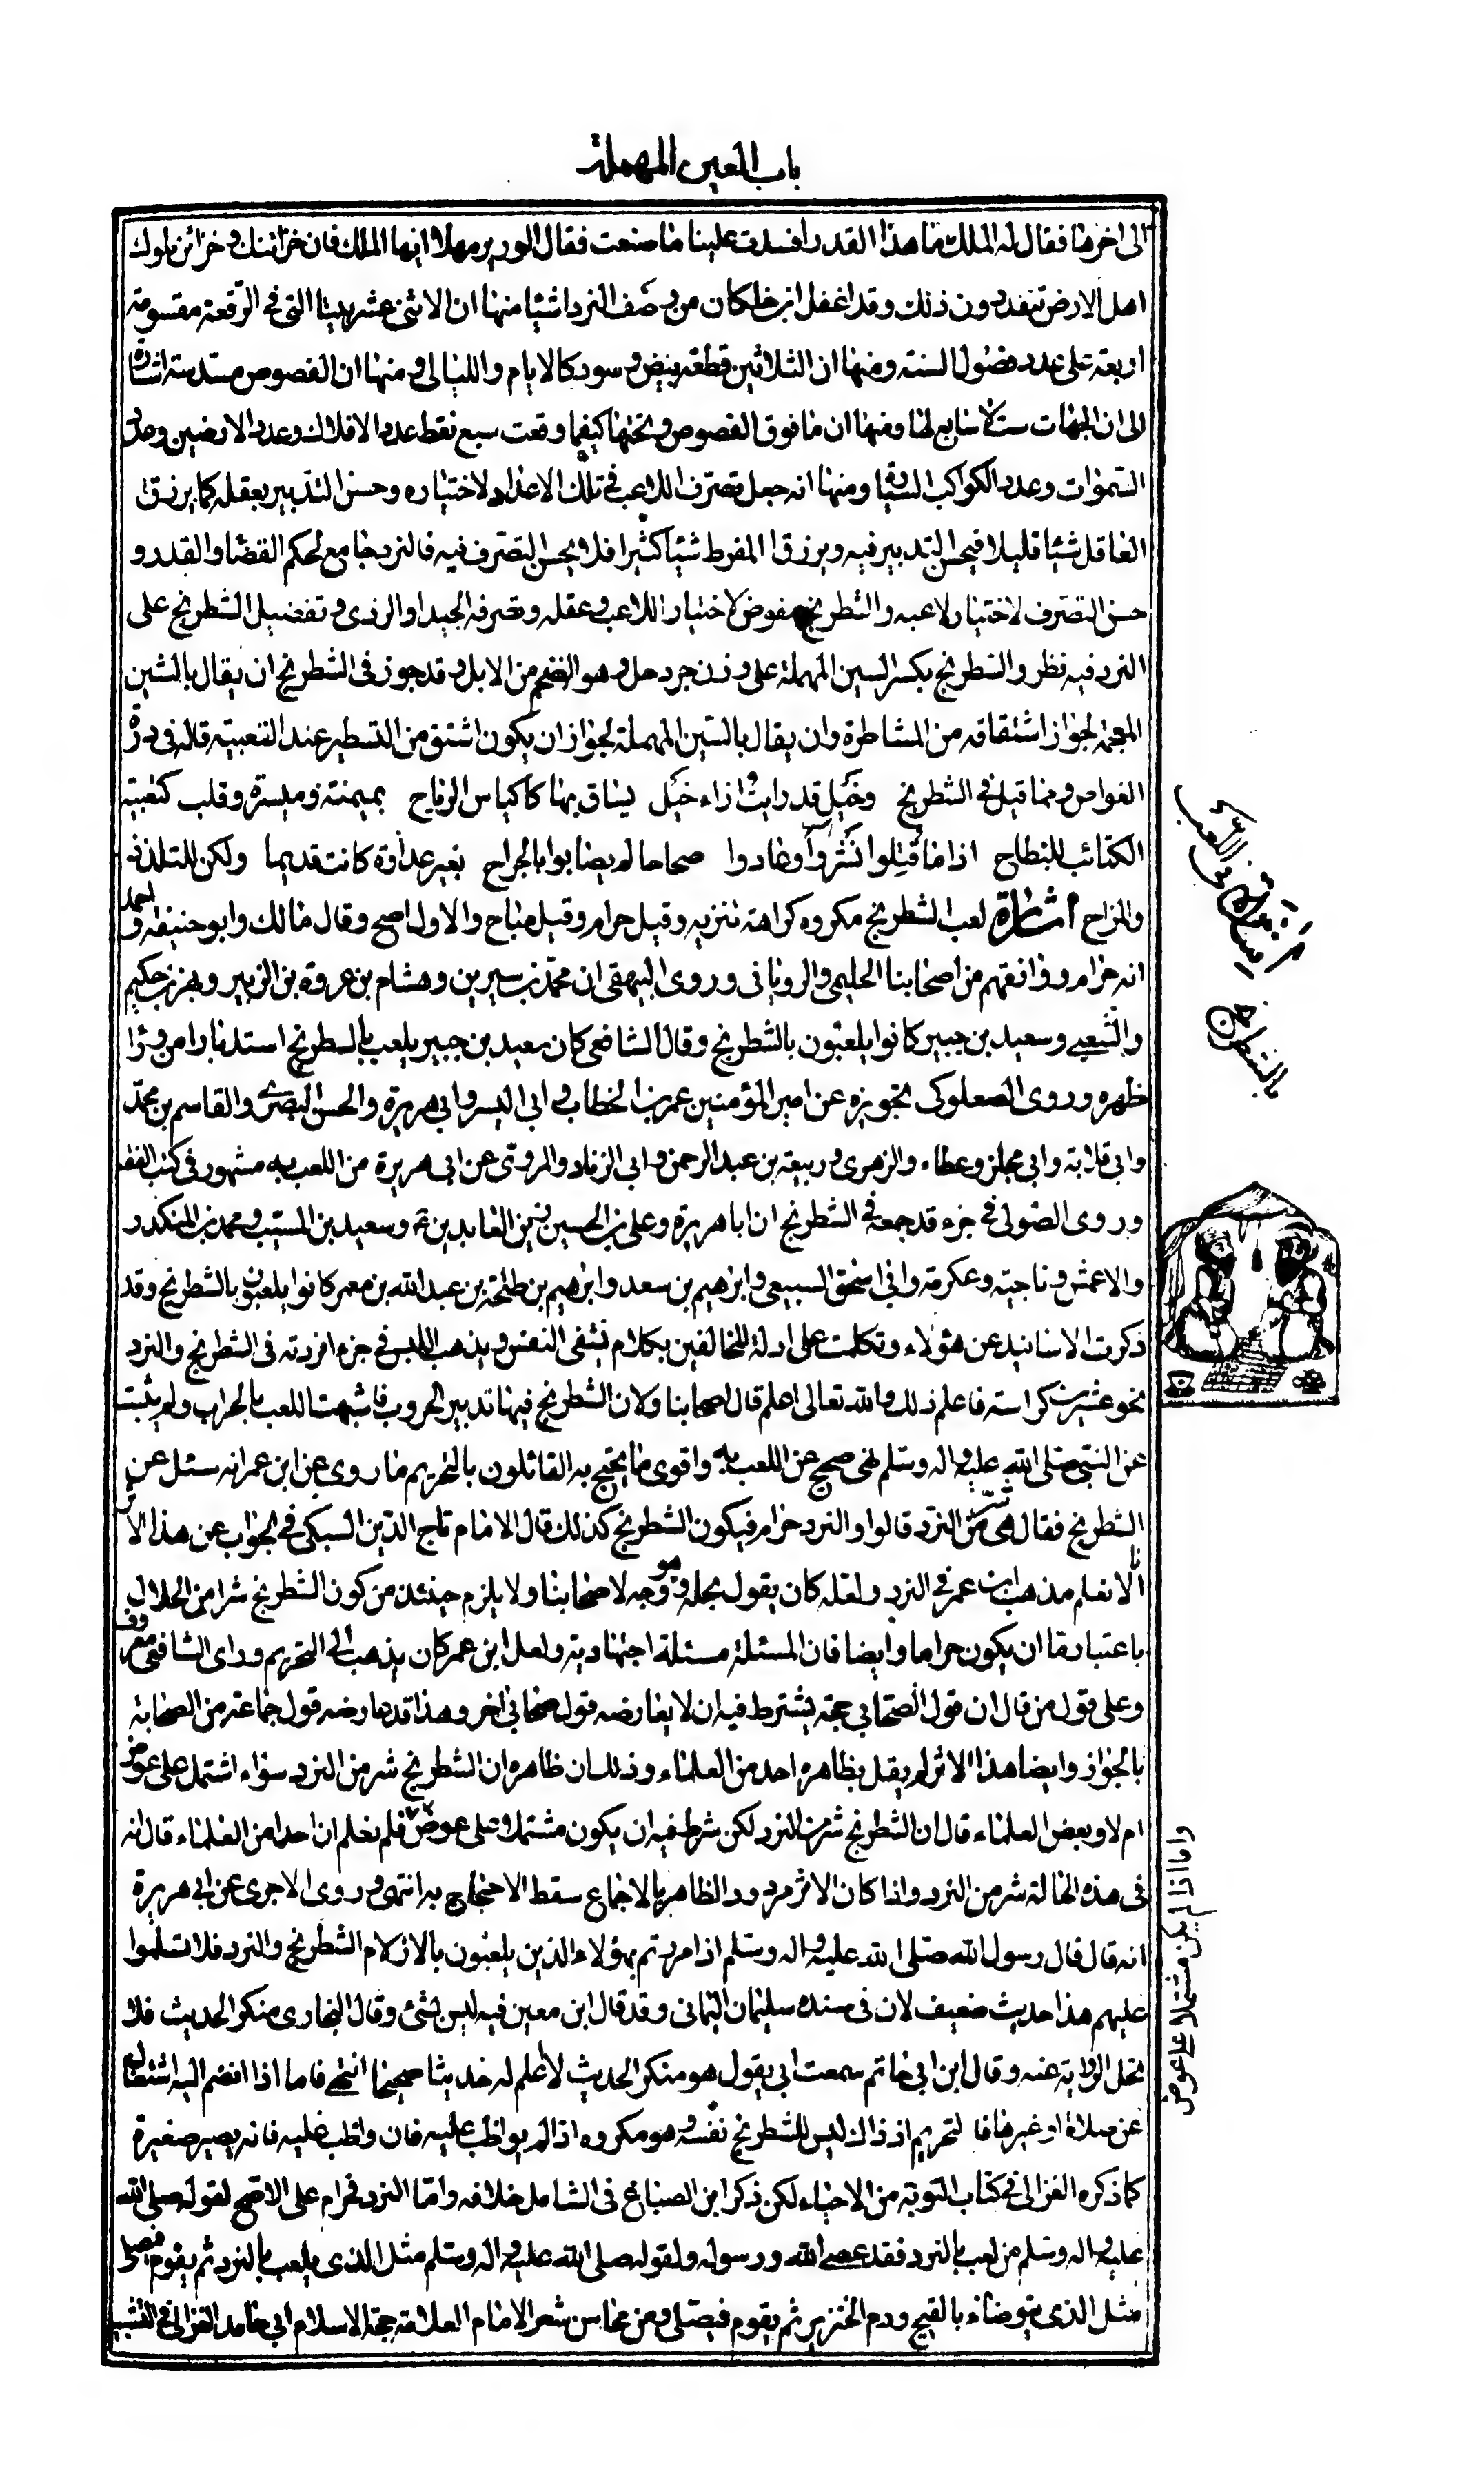 باب العين المهملة
الى اخرها فقال له الملك ما هذا القدر افسدت علينا ما صنعت فقال الوزير مهلا ايها الملك فان خزائنك و خزائن ملوك
اهل الارض تنفد دون ذلك وقد اغفل ابن خلكان من وصف النرد اشيئا منها ان الاثنى عشر بيتا التى فى الرقعة مقسومة
اربعة على عدد فصول السنة ومنها ان الثلاثين قطعة بيض و سود كالايام والليالى و منها ان الفصوص مسدسة اشارة
الى ان الجهات ست لا سابع لها ومنها ان ما فوق الفصوص و تحتها كيفما وقعت سبع نقط عدد الافلاك وعدد الارضين وعدد
السموات وعدد الكواكب السيارة ومنها انه جعل تصرف اللاعب فى تلك الاعداد لاختياره وحسن التدبير بعقله كما يرزق
العاقل شيئا قليلا فيحسن التدبير فيه ويرزق المفرط شيئا كثيرا فلا يحسن التصرف فيه فالنرد جامع لحكم القضا والقدر و
حسن التصرف لاختيار لاعبه والشطرنج مفوض لاختيار اللاعب و عقله وتصرفه الجيد او الردى و تفضيل الشطرنج على
النرد فيه نظر والشطرنج بكسر السين المهملة على وزن جردحل و هو الضخم من الابل و قد جوز فى الشطرنج ان يقال بالشين
المعجمة لجواز اشتقاقه من المشاطرة وان يقال بالسين المهملة لجواز ان يكون اشتق من التسطير عند التعبية قاله فى درة
الغواص و مما قيل فى الشطرنج وخيل قد رايت ازاء خيل يساق بها كاكياس الرماح بميمنة وميسرة وقلب كتعبية
الكتائب للنطاح اذا ما قتلوا نشروا وعادوا صحاحا لم يصابوا بالجراح بغير عداوة كانت قديما ولكن للتلذذ
والمزاح اشارة لعب الشطرنج مكروه كراهة تنزيه وقيل حرام وقيل مباح والاول اصح وقال مالك وابو حنيفة و احمد
انه حرام ووافقهم من اصحابنا الحليمى والرويانى وروى البيهقى ان محمد بن سيرين وهشام بن عروة بن الزبير وبهز بن حكيم
والشعبى وسعيد بن جبير كانوا يلعبون بالشطرنج وقال الشافعى كان سعيد بن جبير يلعب بالسطرنج استدبارا من ورا
ظهره وروى الصعلوكى تجويزه عن امير المؤمنين عمر بن الخطاب و ابى اليسر وابى هريرة والحسن البصرى والقاسم بن محمد
وابى قلابة وابى مجلز وعطاء والزهرى و ربيعة بن عبد الرحمن و ابى الزناد والمروى عن ابى هريرة من اللعب به مشهور فى كتب الفقه
وروى الصولى فى جزء قد جمعه فى الشطرنج ان ابا هريرة وعلى بن الحسين زين العابدين ع وسعيد بن المسيب و محمد بن المنكدر
والاعمش و ناجية وعكرمة وابى اسحق السبيعى وابراهيم بن سعد وابراهيم بن طلحة بن عبد الله بن معمر كانوا يلعبون بالشطرنج وقد
ذكرت الاسانيد عن هؤلاء وتكلمت على ادلة للمخالفين بكلام يشفى النفس و يذهب اللبس فى جزء افردته فى الشطرنج والنرد
نحو عشرين كراسة فاعلم ذلك والله تعالى اعلم قال اصحابنا ولان الشطرنج فيها تدبير الحروب فاشبهت اللعب بالحراب ولم يثبت
عن النبى صلى الله عليه واله وسلم نهى صحيح عن اللعب به واقوى ما يحتج به القائلون بالتحريم ما روى عن ابن عمر انه سئل عن
الشطرنج فقال هى شر من النرد قالوا والنرد حرام فيكون الشطرنج كذلك قال الامام تاج الدين السبكى فى الجواب عن هذا الاثر
انا لا نعلم مذهب ابن عمر فى النرد ولعله كان يقول بحله و هو وجه لاصحابنا ولا يلزم حينئذ من كون الشطرنج شرا من الحلال
باعتبار ما ان يكون حراما وايضا فان المسئلة مسئلة اجتهادية ولعل ابن عمر كان يذهب الى التحريم وراى الشافعى معروف
وعلى قول من قال ان قول الصحابى حجة يشترط فيه ان لا يعارضه قول صحابى اخر وهذا قد عارضه قول جماعة من الصحابة
بالجواز وايضا هذا الاثر لم يقل بظاهره احد من العلماء وذلك ان ظاهره ان الشطرنج شر من النرد سواء اشتمل على عوض
ام لا وبعض العلماء قال ان الشطرنج شر من النرد لكن شرط فيه ان يكون مشتملا على عوض فلم نعلم ان احدا من العلماء قال انه
فى هذه الحالة شر من النرد واذا كان الاثر مردود الظاهر بالاجماع سقط الاحتجاج به انتهى و روى الاجرى عن ابى هريرة
انه قال قال رسول الله صلى الله عليه واله وسلم اذا مررتم بهؤلاء الذين يلعبون بالازلام الشطرنج والنرد فلا تسلموا
عليهم هذا حديث ضعيف لان فى سنده سليمان اليمانى وقد قال ابن معين فيه ليس بشئ وقال البخارى منكر الحديث فلا
تحل الرواية عنه وقال ابن ابى حاتم سمعت ابى يقول هو منكر الحديث لا اعلم له حديثا صحيحا انتهى فاما اذا انضم اليه اشتغال
عن صلاة او غيرها فا لتحريم اذ ذاك ليس للشطرنج نفسه و هو مكروه اذا لم يواظب عليه فان واظب عليه فانه يصير صغيرة
كما ذكره الغزالى فى كتاب التوبة من الاحياء لكن ذكر ابن الصباغ فى الشامل خلافه واما النرد فحرام على الاصح لقوله صلى الله
عليه واله وسلم من لعب بالنرد فقد عصى الله ورسوله ولقوله صلى الله عليه واله وسلم مثل الذى يلعب بالنرد ثم يقوم فيصلى
مثل الذى يتوضاء بالقيح ودم الخنزير ثم يقوم فيصلى و من محاسن شعر الامام العلامة حجة الاسلام ابى حامد الغزالى فى التشبيه
بالشطرنج
واما اذا لم يكن مشتملا على عوض